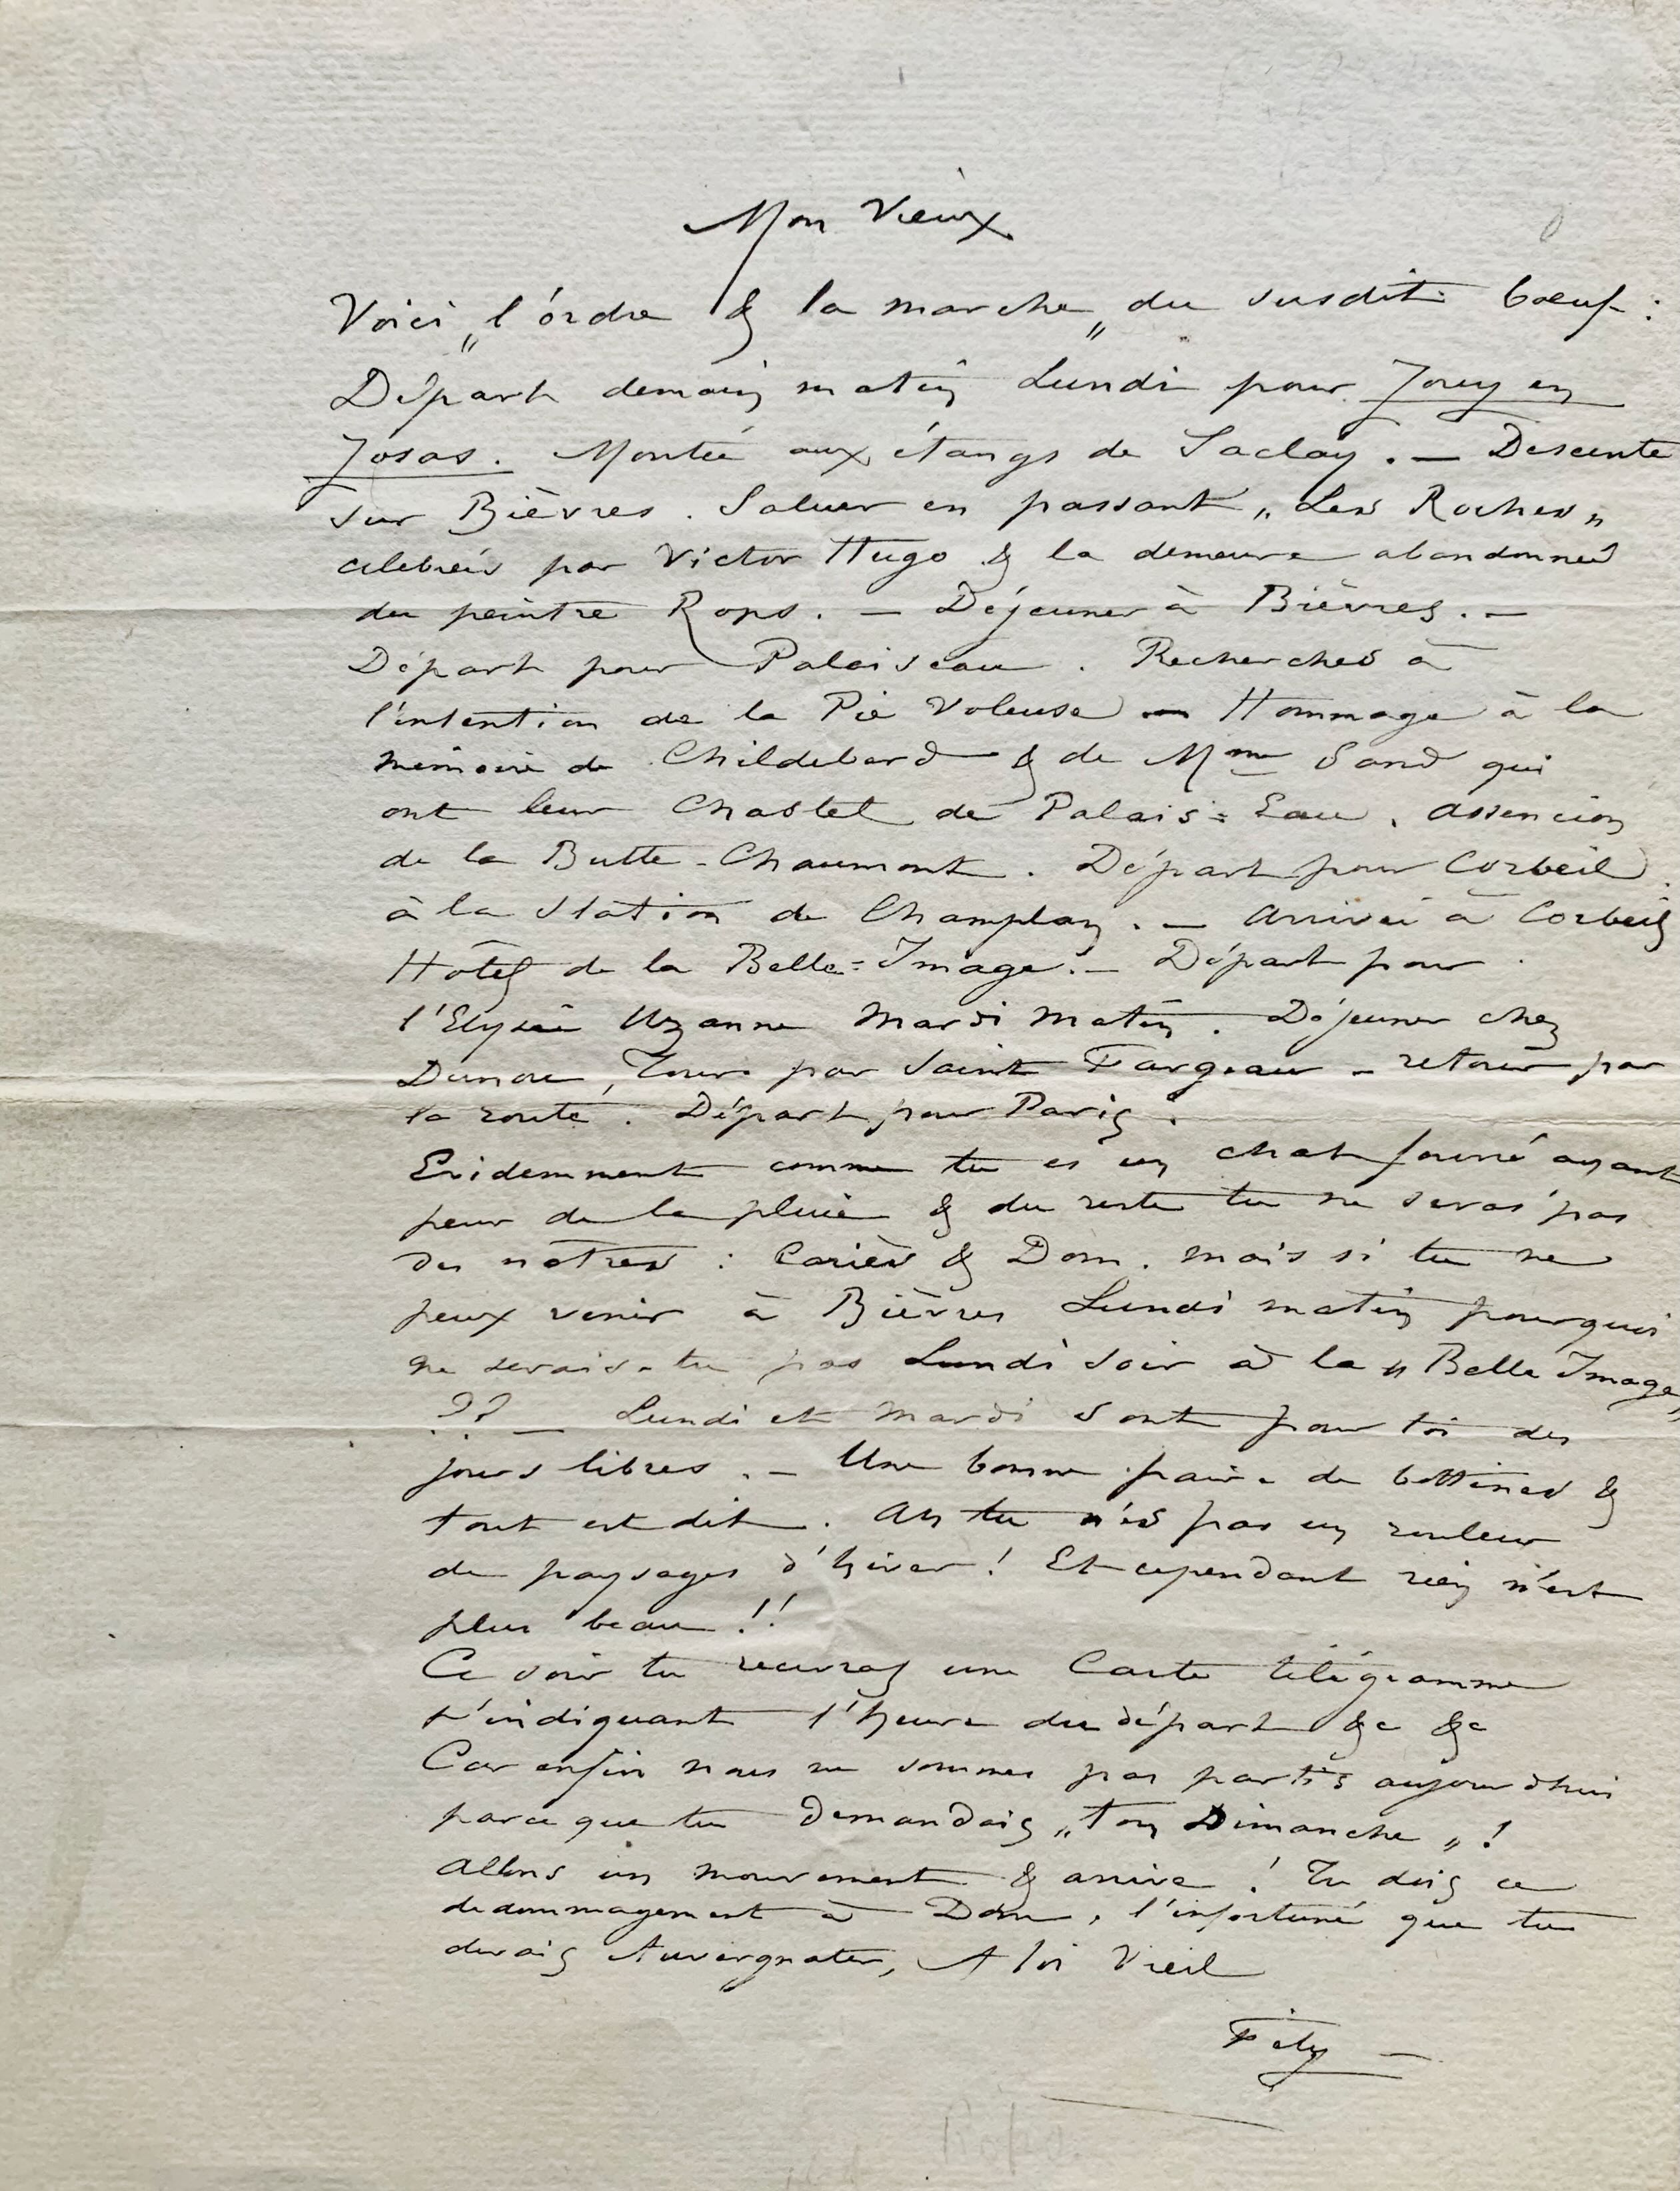 Mon Vieux
Voici „l'ordre & la marche„ du susdit bœuf :
Départ demain matin Lundi pour Jouy en
Josas. Montée aux étangs de Saclay. — Descente
sur Bièvres. Saluer en passant „Les Roches„
célébrés par Victor Hugo & la demeure abandonnée
du peintre Rops. — Déjeuner à Bièvres. —
Départ pour Palaiseau. Recherches à
l'intention de la Pie Voleuse — Hommage à la
mémoire de Childeberd & de Mme Sand qui
ont leur Chastel de Palais=Eau. Assencion
de la Butte-Chaumont. Départ pour Corbeil
à la Station de Champlan. — Arrivée à Corbeil
Hôtel de la Belle=Image. — Départ pour
l'Elysée Uzanne Mardi matin. Déjeuner chez
par Saint Fargeau – retour par
la route. Départ pour Paris.
Evidemment comme tu es un chat fourré ayant
peur de la pluie & du reste tu ne seras pas
des nôtres : Cariès & Dom. mais si tu ne
peux venir à Bièvres Lundi matin pourquoi
ne serais-tu pas Lundi soir à la „Belle Image„
?? — Lundi et Mardi sont pour toi des
jours libres. — Une bonne paire de bottines &
tout est dit. Ah tu n'es pas un rouleur
de paysages d'hiver! Et cependant rien n'est
plus beau!!
Ce soir tu recevras une Carte télégramme
t'indiquant l'heure du départ &c &c
Car enfin nous ne sommes pas partis aujourdhui
parce que tu demandais „ton Dimanche„!
Allons un mouvement & arrive! Tu dois ce
dedommagement à Dom, l'infortuné que tu
devais Auvergnater, A toi Vieil
Fély —
Rops